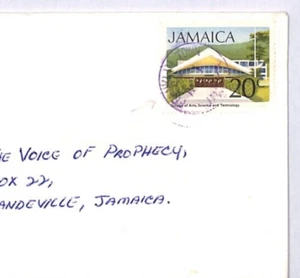 JAMAICA
20c
of Arts, Science and Technology
HE VOICE OF PROPHECY,
OX 22,
ANDEVILLE, JAMAICA.